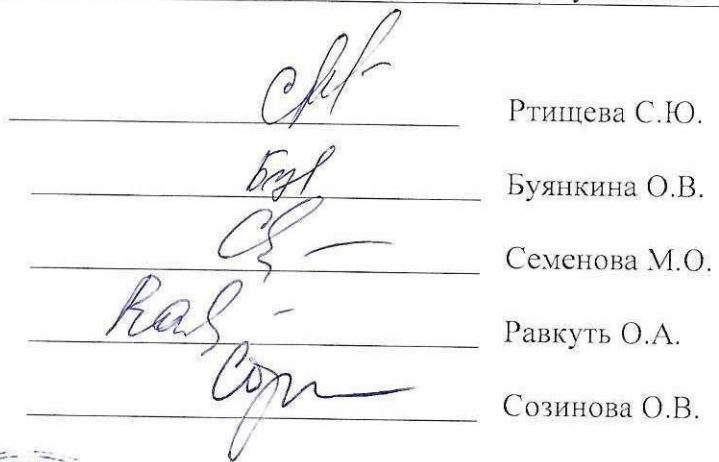 Ртищева С.Ю.
Буянкина О.В.
Семенова М.О.
Равкуть О.А.
Созинова О.В.